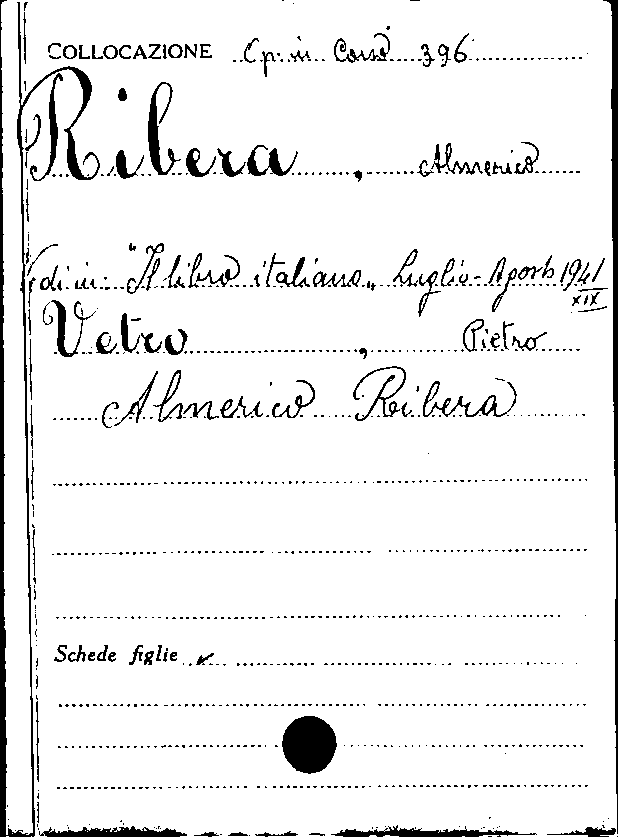 COLLOCAZIONE Cp. in Corso 396
Ribera, Almerico
Vedi in: "Il libro italiano" Luglio-Agosto 1941
XIX
Vetro, Pietro
Almerico Ribera
Schede figlie ✓